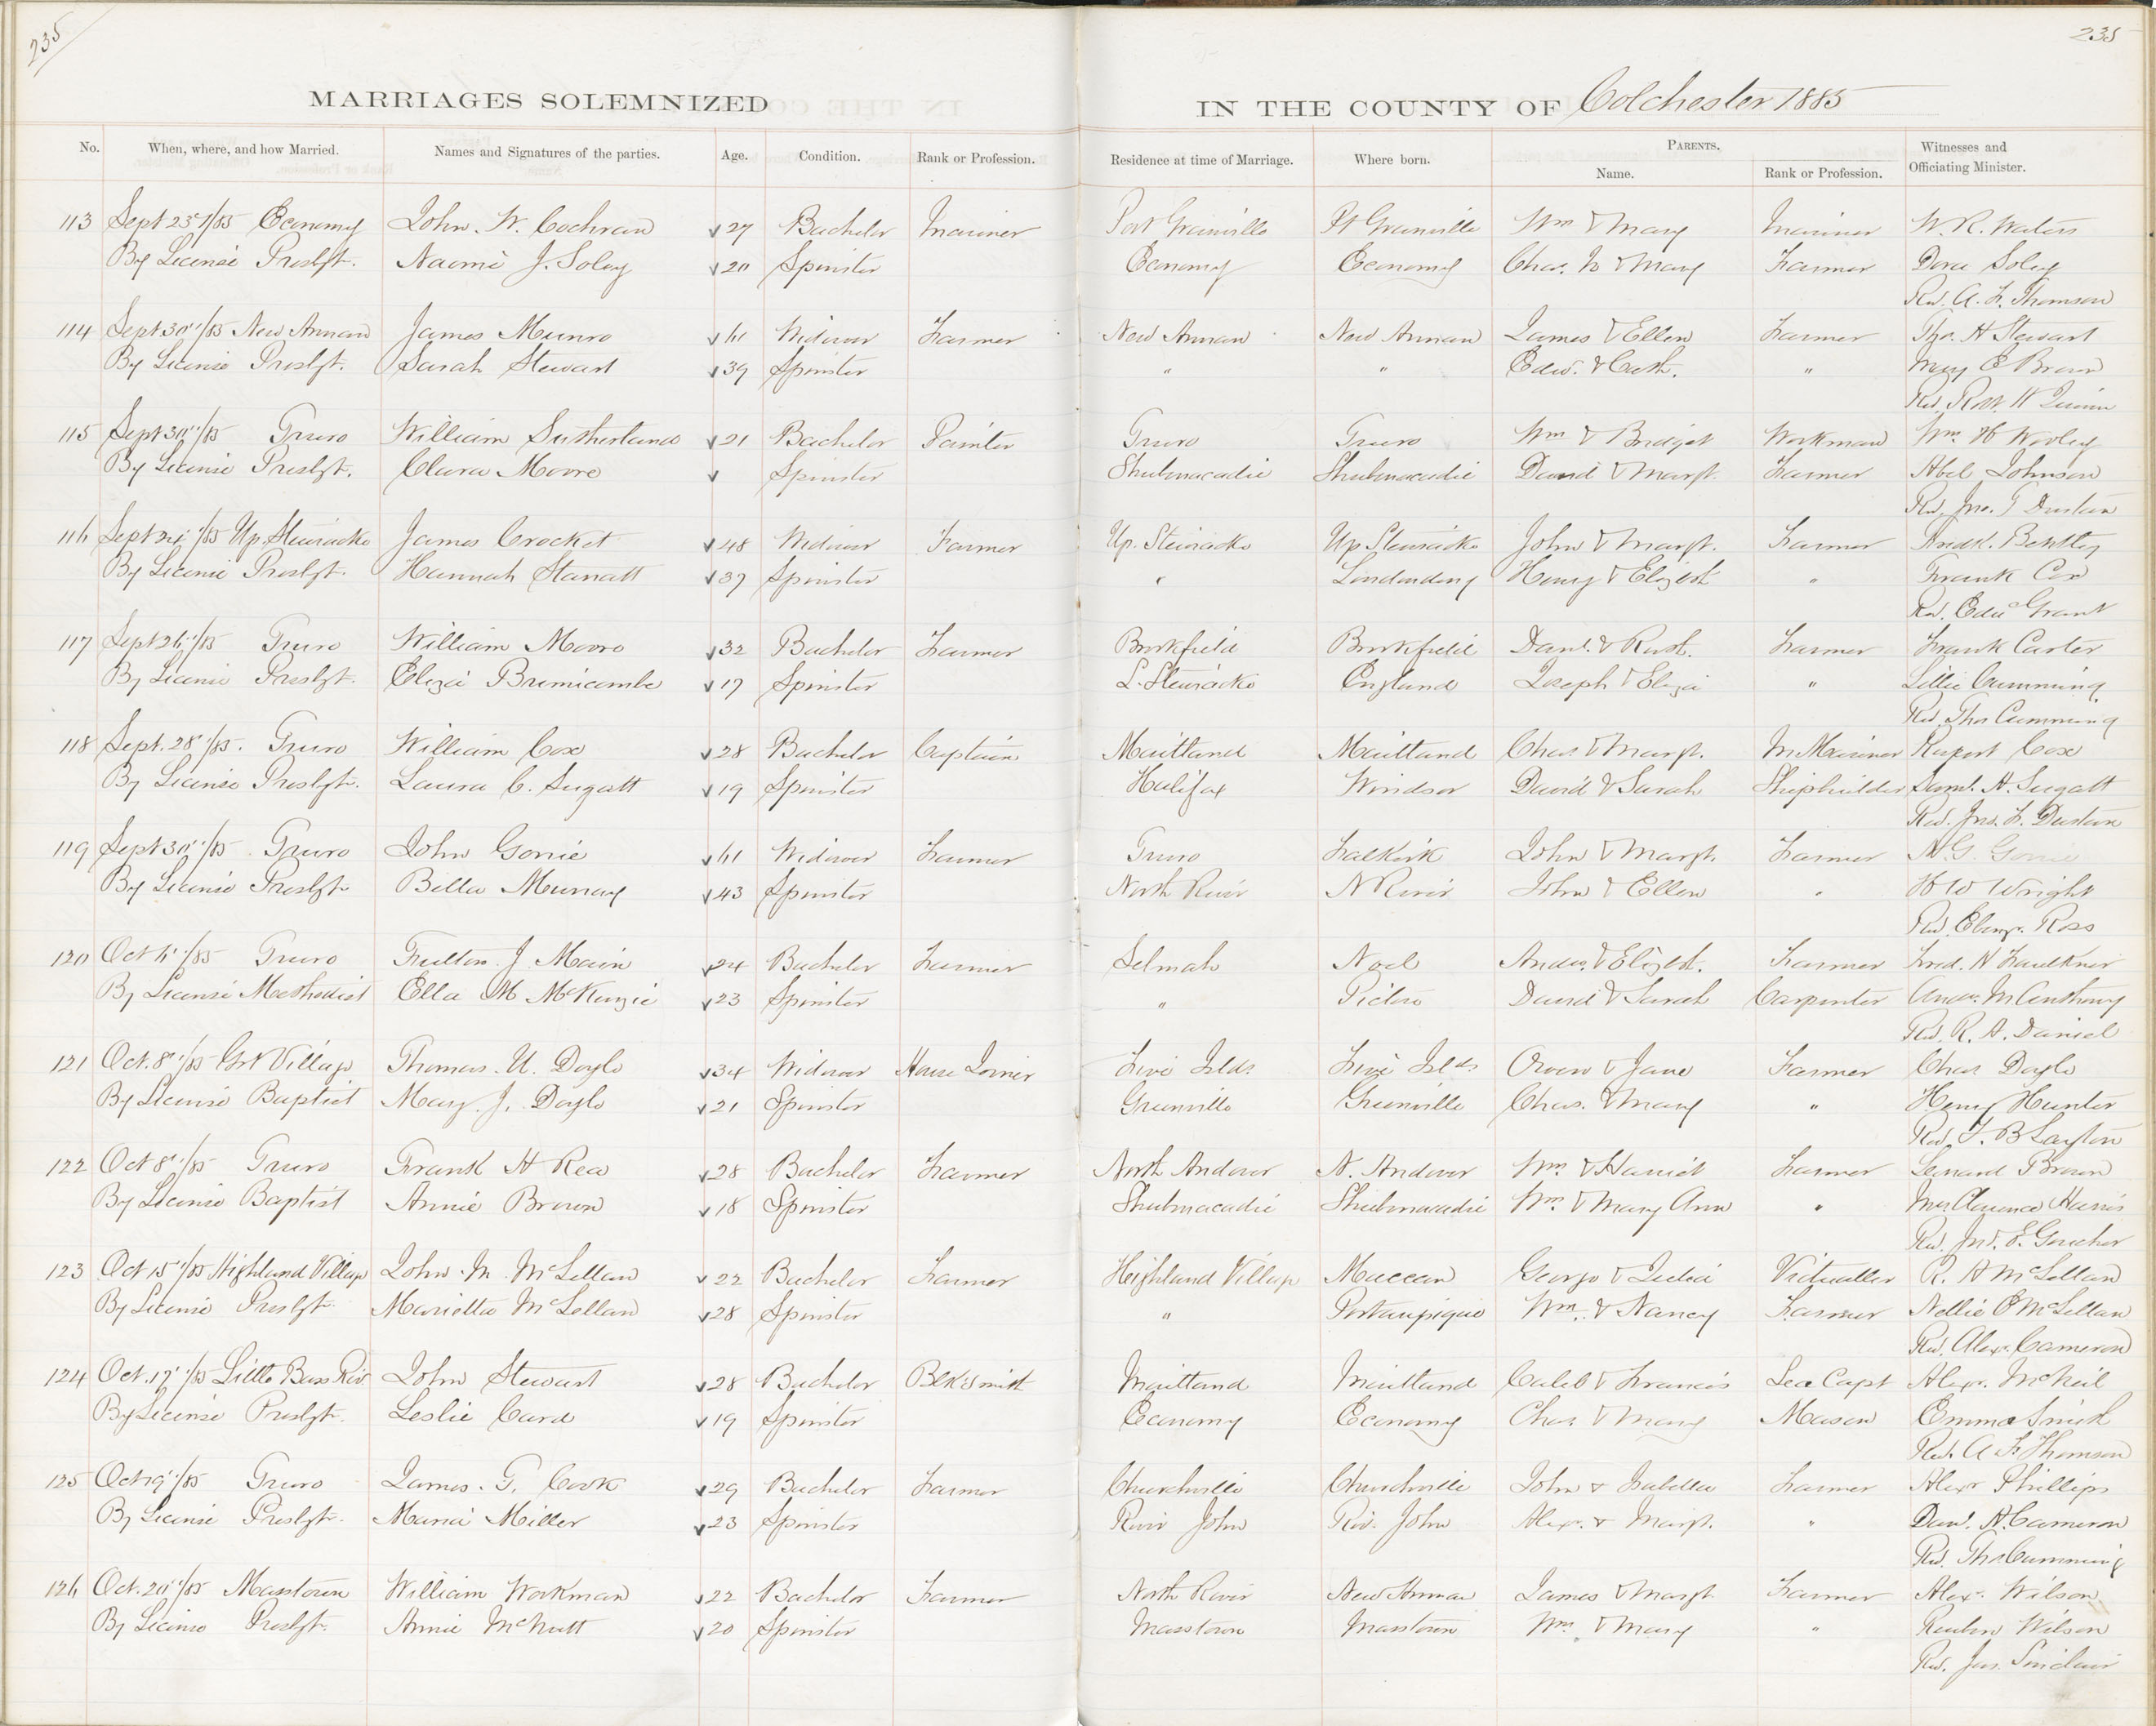 235
235
MARRIAGES SOLEMNIZED IN THE COUNTY OF Colchester 1885
No. When, where, and how Married. Names and Signatures of the parties. Age. Condition. Rank or Profession. Residence at time of Marriage. Where born. PARENTS. Name. Rank or Profession. Witnesses and Officiating Minister.
113 Sept 23d/85 Economy John. W. Cochran 27 Bachelor Mariner Port Grenville Pt Grenville Wm & Mary Mariner W. R. Waters
By License Presbyt. Naomi J. Soley 20 Spinster Economy Economy Chas. & Mary Farmer Dora Soley
Rev. A. F. Thomson
114 Sept 30"/85 New Annan James Munro 61 Widower Farmer New Annan New Annan James & Ellen Farmer Tho. H Stewart
By License Presbyt. Sarah Stewart 39 Spinster " " Edw. & Cath. " Mary E Brown
Rev. Robt. H
115 Sept 30"/85 Truro William Sutherland 21 Bachelor Painter Truro Truro Wm & Bridget Workman Wm. H
By License Presbyt. Clara Moore Spinster Shubenacadie Shubenacadie David & Margt. Farmer Abel Johnson
Rev. Jno. Dustan
116 Sept 24"/85 Up. Stewiacke James Crocket 48 Widower Farmer Up. Stewiacke Up Stewiacke John & Margt. Farmer Bentley
By License Presbyt. Hannah 37 Spinster " Londonderry Henry & Elizbth " Frank Cox
Rev. Edw Grant
117 Sept 26"/85 Truro William Moore 32 Bachelor Farmer Brookfield Brookfield Danl. & Farmer Frank Carter
By License Presbyt. Eliza Brimicombe 17 Spinster L. Stewiacke England Joseph & Eliza " Lillie Cumming
Rev. Thos Cumming
118 Sept. 28"/85. Truro William Cox 28 Bachelor Captain Maitland Maitland Chas & Margt. M Mariner Rupert Cox
By License Presbyt. Laura C. Sugatt 19 Spinster Halifax Windsor David & Sarah Shipbuilder Saml. H. Sugatt
Rev. Jno. F. Dustan
119 Sept 30"/85 Truro John Gorrie 61 Widower Farmer Truro Falkirk John & Margt. Farmer N. G. Gorrie
By License Presbyt. Bella Murray 43 Spinster North River N River John & Ellen " H W Wright
Rev. Ebenr. Ross
120 Oct 6"/85 Truro Fulton J. Main 24 Bachelor Farmer Selmah Noel Andw. & Elizbth. Farmer Fred. N Faulkner
By License Methodist Ella M McKenzie 23 Spinster " Pictou David & Sarah Carpenter Andw. M Anthony
Rev. R. A. Daniel
121 Oct. 8"/85 Grt Village Thomas. U. Doyle 34 Widower House Joiner Five Islds. Five Islds Owen & Jane Farmer Chas Doyle
By License Baptist Mary. J. Doyle 21 Spinster Greenville Greenville Chas. & Mary " Henry Hunter
Rev. F. B Layton
122 Oct 8"/85 Truro Frank H Rea 28 Bachelor Farmer North Andover N. Andover Wm & Harriet Farmer Lenard Brown
By License Baptist Annie Brown 18 Spinster Shubenacadie Shubenacadie Wm. & Mary Ann " Mrs Clarence Harris
Rev. Jno. E. Goucher
123 Oct 15"/85 Highland Village John. M. McLellan 22 Bachelor Farmer Heighland Village Maccan George & Victualler R. A McLellan
By License Presbyt. Marietta McLellan 28 Spinster " Portaupique Wm. & Nancy Farmer Nellie McLellan
Rev. Alexr. Cameron
124 Oct. 17"/85 Little Bass Riv John Stewart 28 Bachelor Blk Smith Maitland Maitland Caleb & Francis Sea Capt Alexr. McNeil
By License Presbyt. Leslie Card 19 Spinster Economy Economy Chas. & Mary Mason Emma Smith
Rev. A F. Thomson
125 Oct 19"/85 Truro James. G. Cook 29 Bachelor Farmer Churchville Churchville John & Isabella Farmer Alexr Phillips
By License Presbyt. Maria Miller 23 Spinster River John Riv. John Alexr. & Margt. " Danl. A. Cameron
Rev. Thos Cumming
126 Oct. 20"/85 Masstown William Workman 22 Bachelor Farmer North River New Annan James & Margt Farmer Alexr. Wilson
By License Presbyt. Annie McNutt 20 Spinster Masstown Masstown Wm. & Mary " Reuben Wilson
Rev. Jas. Sinclair